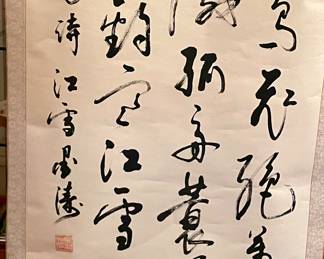 鳥飛絕萬
滅孤舟蓑
釣寒江雪
詩江雪